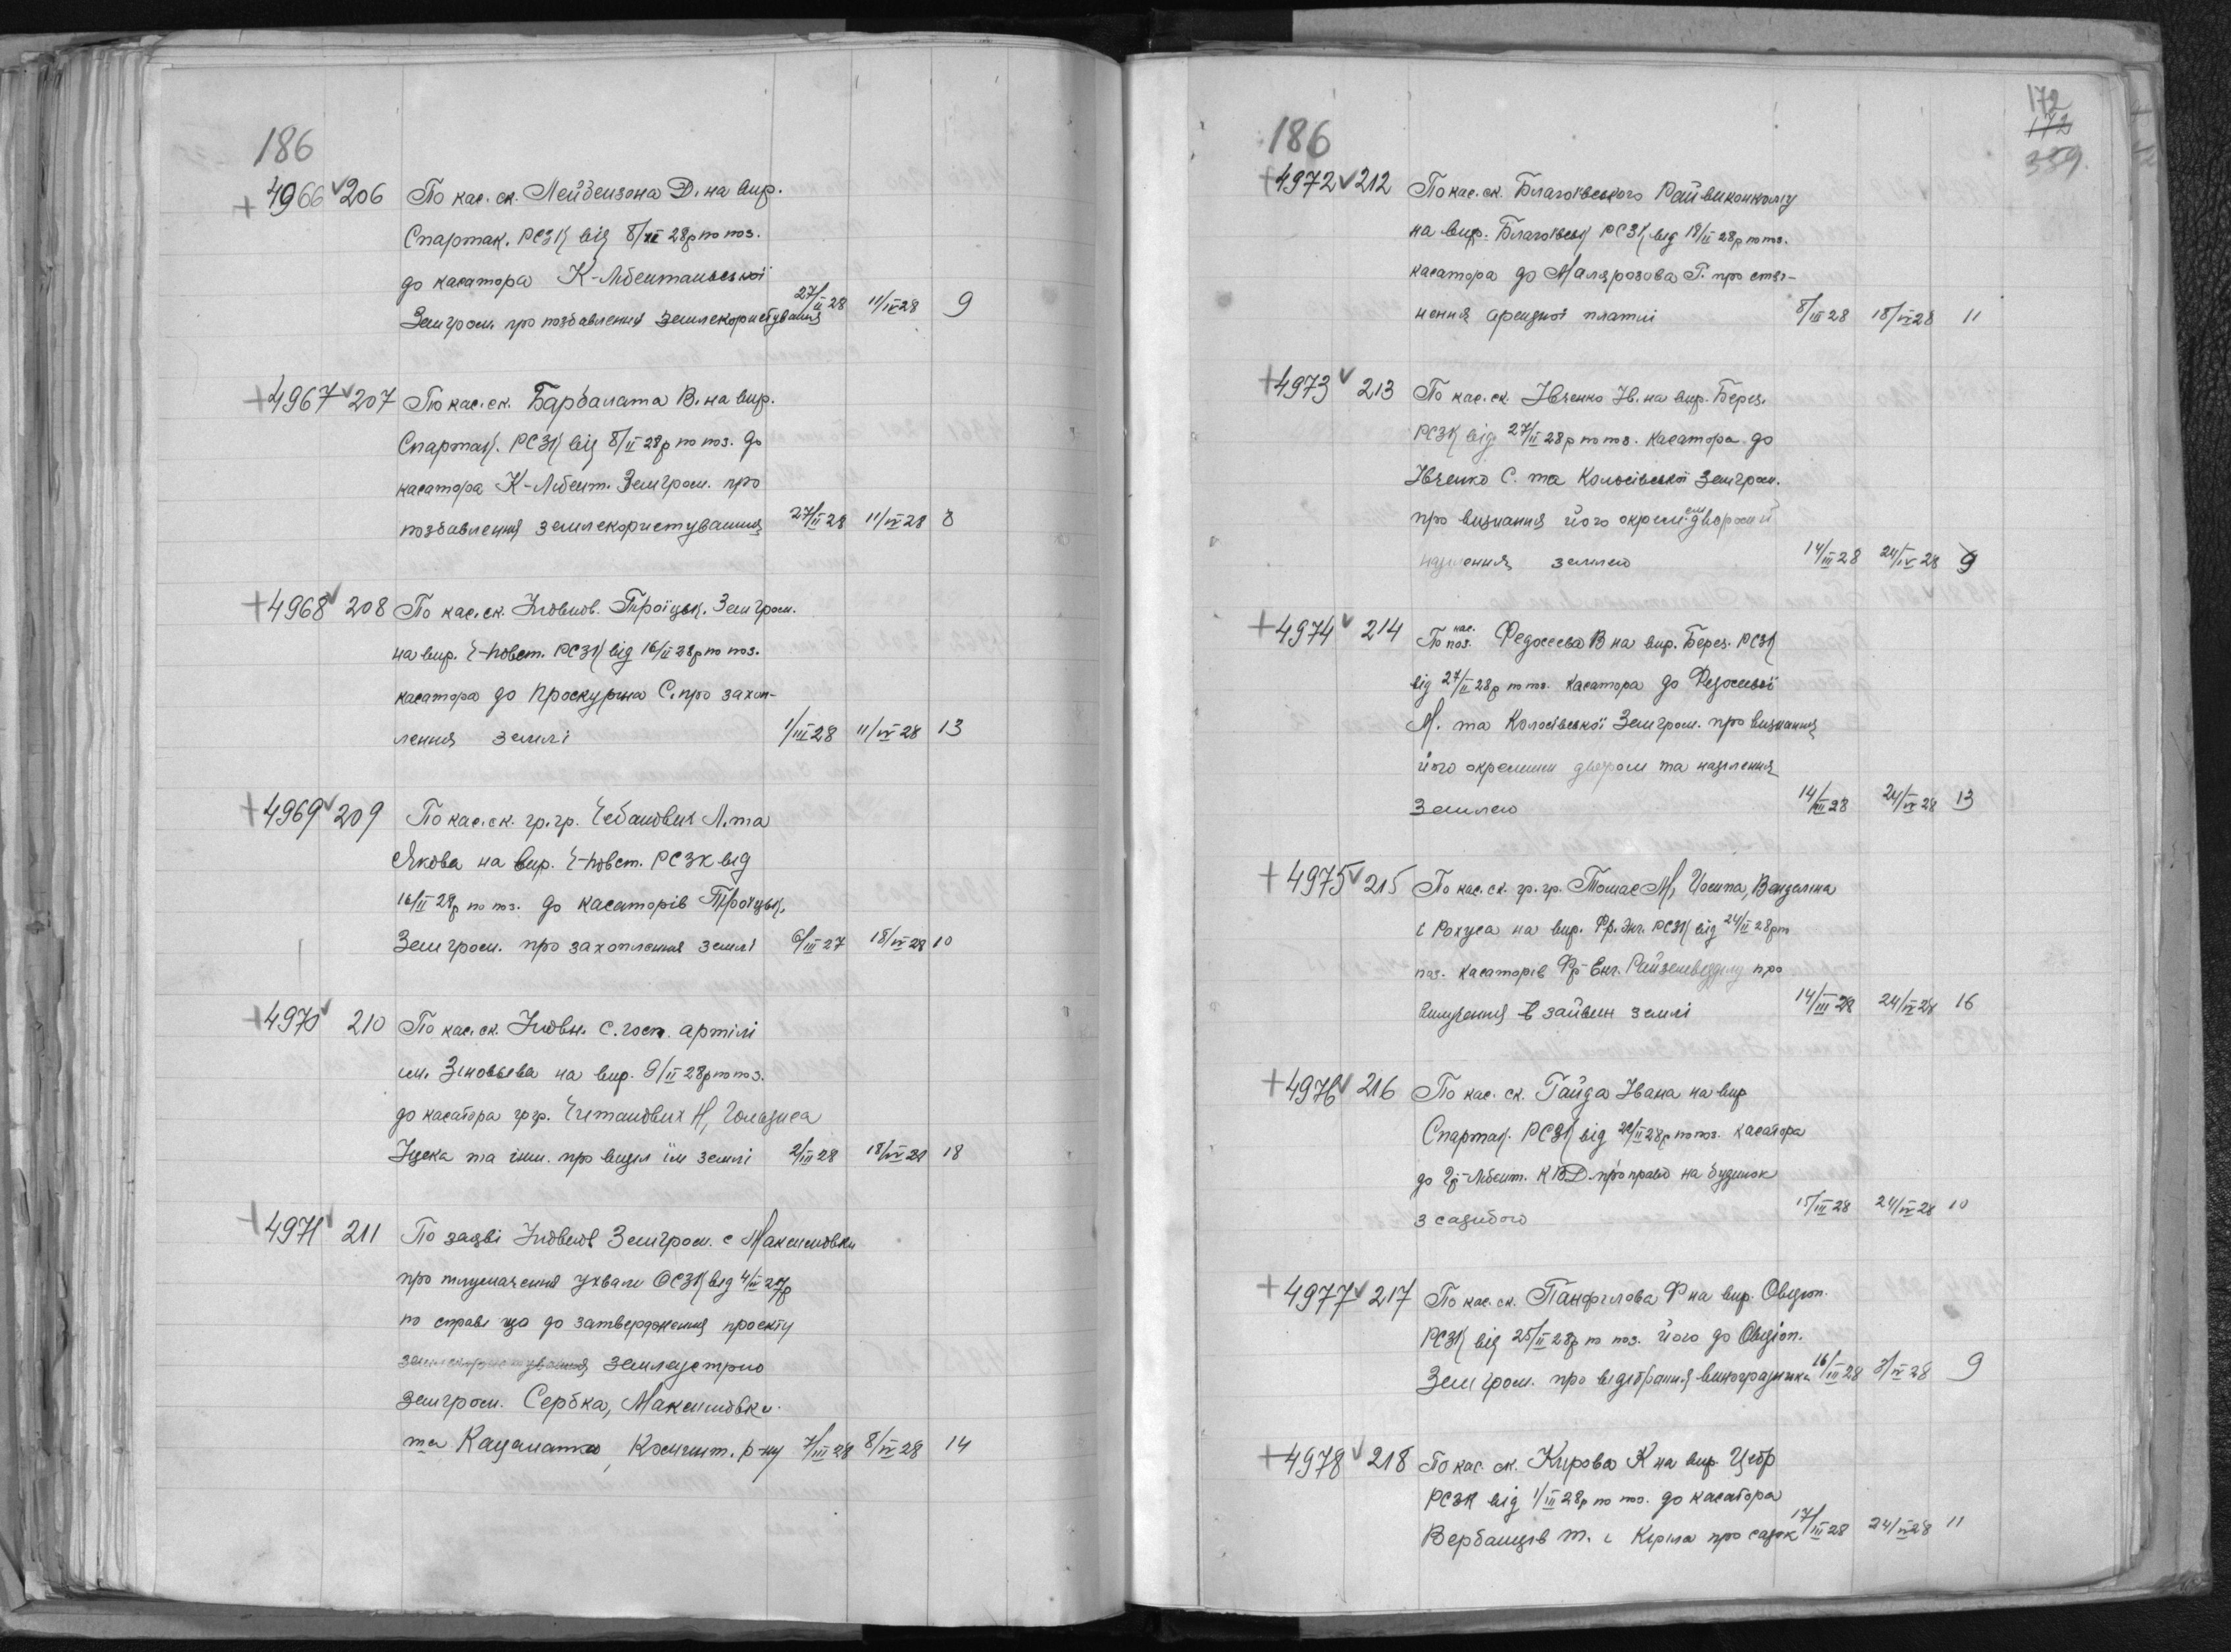 186
+ 4966 v 206 По кас. ск. Лейбензона Д. на вир.
Спартак. РСЗК від 8/II 28р по поз.
до касатора К-Лібентальської
Земгром. про позбавлення землекористування 27/II 28 11/IV 28 9
+ 4967 v 207 По кас. ск. Барбалата В. на вир.
Спартак. РСЗК від 8/II 28р по поз. до
касатора К-Лібент. Земгром. про
позбавлення землекористування 27/II 28 11/IV 28 8
+ 4968 v 208 По кас. ск. Троїцьк. Земгром.
на вир. РСЗК від 16/II 28р по поз.
касатора до Проскурина С. про захоп-
лення землі 1/III 28 11/IV 28 13
+ 4969 v 209 По кас. ск. гр. гр. Чебанових Л. та
Якова на вир. РСЗК від
16/II 28р по поз. до касаторів Троїцьк.
Земгром. про захоплення землі 6/III 27 18/IV 28 10
+ 4970 v 210 По кас. ск. с. госп. артілі
ім. Зіновьева на вир. 9/II 28р по поз.
до касатора гр гр. Н,
та інш. про виділ їм землі 2/III 28 18/IV 28 18
+ 4971 v 211 По заяві Земгром. с Максимовки
про тлумачення ухвали ОСЗК від 4/II 27р
по справі що до затвердження проєкту
землекористування землеустрою
земгром. Сербка, Максимовки
та Кацамата, Комінт. р-ну 7/III 28 8/IV 28 14
172
172
339.
186
+ 4972 v 212 По кас. ск. Благоївського Райвиконкому
на вир. Благоївськ РСЗК від 18/II 28р по поз.
касатора до Малярозова Г. про стяг-
нення арендної платні 8/III 28 18/IV 28 11
+ 4973 v 213 По кас. ск. Івченко Ів. на вир. Берез.
РСЗК від 27/II 28р по поз. касатора до
Івченко С. та Колосівської Земгром.
про визнання його окремим двором й
наділення землею 14/III 28 24/IV 28 9
+ 4974 v 214 По кас. поз. Федосеева В на вир. Берез. РСЗК
від 27/II 28р по поз. касатора до Федосеевої
М. та Колосівської Земгром. про визнання
його окремим двором та наділення
землею 14/III 28 24/IV 28 13
+ 4975 v 215 По кас. ск. гр. гр. Томас М, Йосипа, Вендаліна
і Рохуса на вир. Фр. Енг. РСЗК від 24/II 28р по
поз. касаторів Фр Енг. Райземвідділу про
вилучення зайвин землі 14/III 28 24/IV 28 16
+ 4976 v 216 По кас. ск. Гайда Івана на вир
Спартак. РСЗК від 28р по поз. касатора
до Гр-Лібент. КВД про право на будинок
з садибою 15/III 28 24/IV 28 10
+ 4977 v 217 По кас. ск. Панфилова Ф на вир. Овідіоп.
РСЗК від 25/II 28р по поз. його до Овідіоп.
Земгром. про відібрання виноградника 16/III 28 3/IV 28 9
+ 4978 v 218 По кас. ск. Кирова К на вир. Цебр
РСЗК від 1/III 28р по поз. до касатора
Вербанців Т. і Киріла про садок 17/III 28 24/IV 28 11